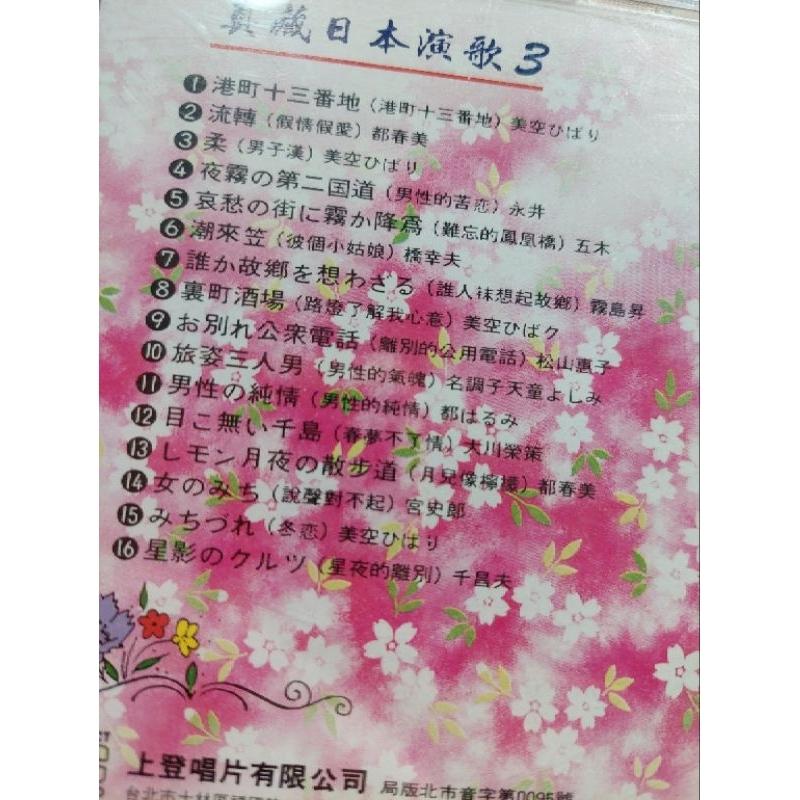 真藏日本演歌3
❶港町十三番地(港町十三番地)美空ひばり
❷流轉(假情假愛)都春美
❸柔(男子漢)美空ひばり
❹夜霧の第二国道(男性的苦恋)永井
❺哀愁の街に霧か降爲(難忘的鳳凰橋)五木
❻潮來笠(彼個小姑娘)橋幸夫
❼誰か故鄉を想わざる(誰人袜想起故鄉)霧島昇
❽裏町酒場(路燈了解我心意)美空ひばク
❾お別れ公衆電話(離別的公用電話)松山惠子
❿旅姿三人男(男性的氣魄)名調子天童よしみ
⓫男性の純情(男性的純情)都はるみ
⓬目こ無い千島(春夢不了情)大川榮策
⓭レモン月夜の散步道(月兒像檸檬)都春美
⓮女のみち(說聲對不起)宮史郎
⓯みちづれ(冬恋)美空ひばり
⓰星影のクルツ(星夜的離別)千昌夫
上登唱片有限公司 局版北市音字第0095號